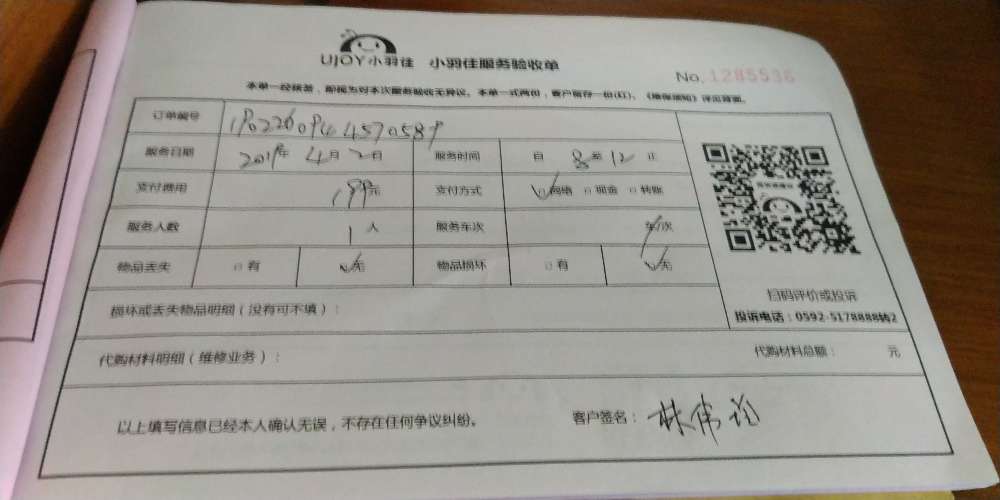 UJOY小羽佳 小羽佳服务验收单
No.1285536
本单一经核签，即视为对本次服务验收无异议。本单一式两份，客户留存一份(红)。《维保须知》详见背面。
订单编号
服务日期 2019年 4月2日 服务时间 自 8 至 12 止
支付费用 199元 支付方式 网络 现金 转账
服务人数 1 人 服务车次 车/次
物品丢失 有 无 物品损坏 有 无
扫码评价或投诉
投诉电话：0592-5178888转2
损坏或丢失物品明细（没有可不填）：
代购材料明细（维修业务）： 代购材料总额： 元
以上填写信息已经本人确认无误，不存在任何争议纠纷。 客户签名：林伟